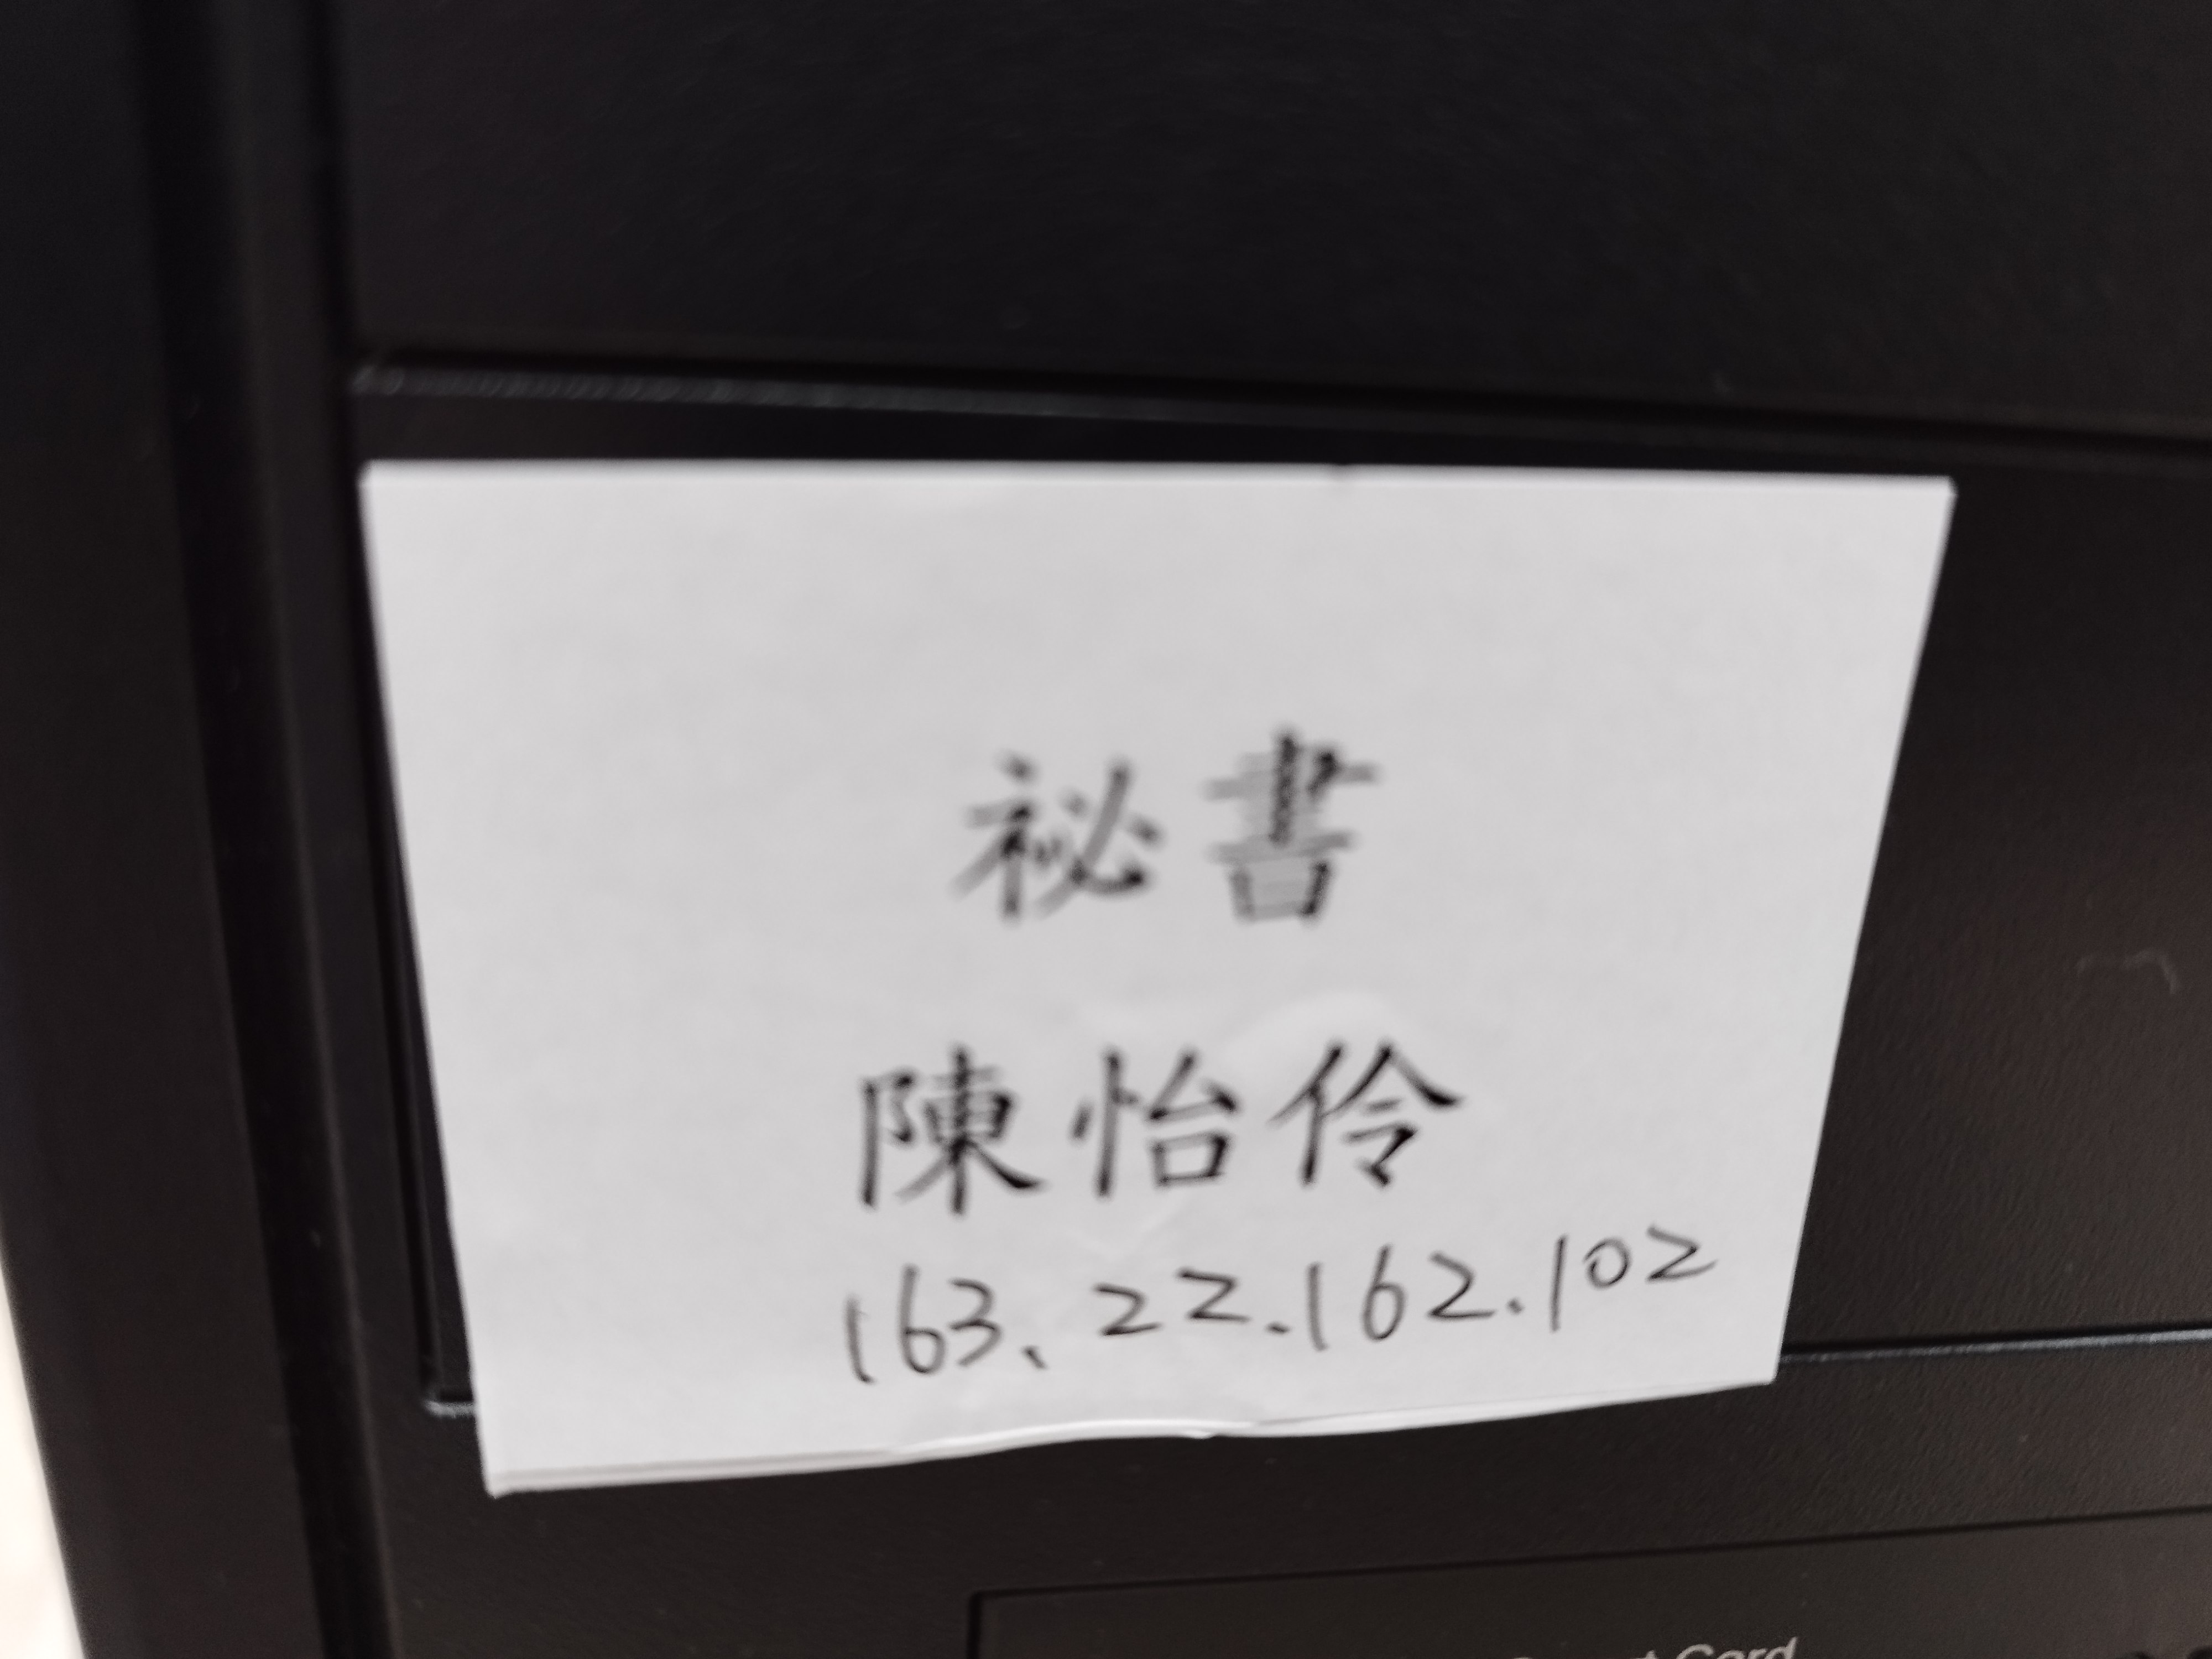 祕書
陳怡伶
163.22.162.102
Card